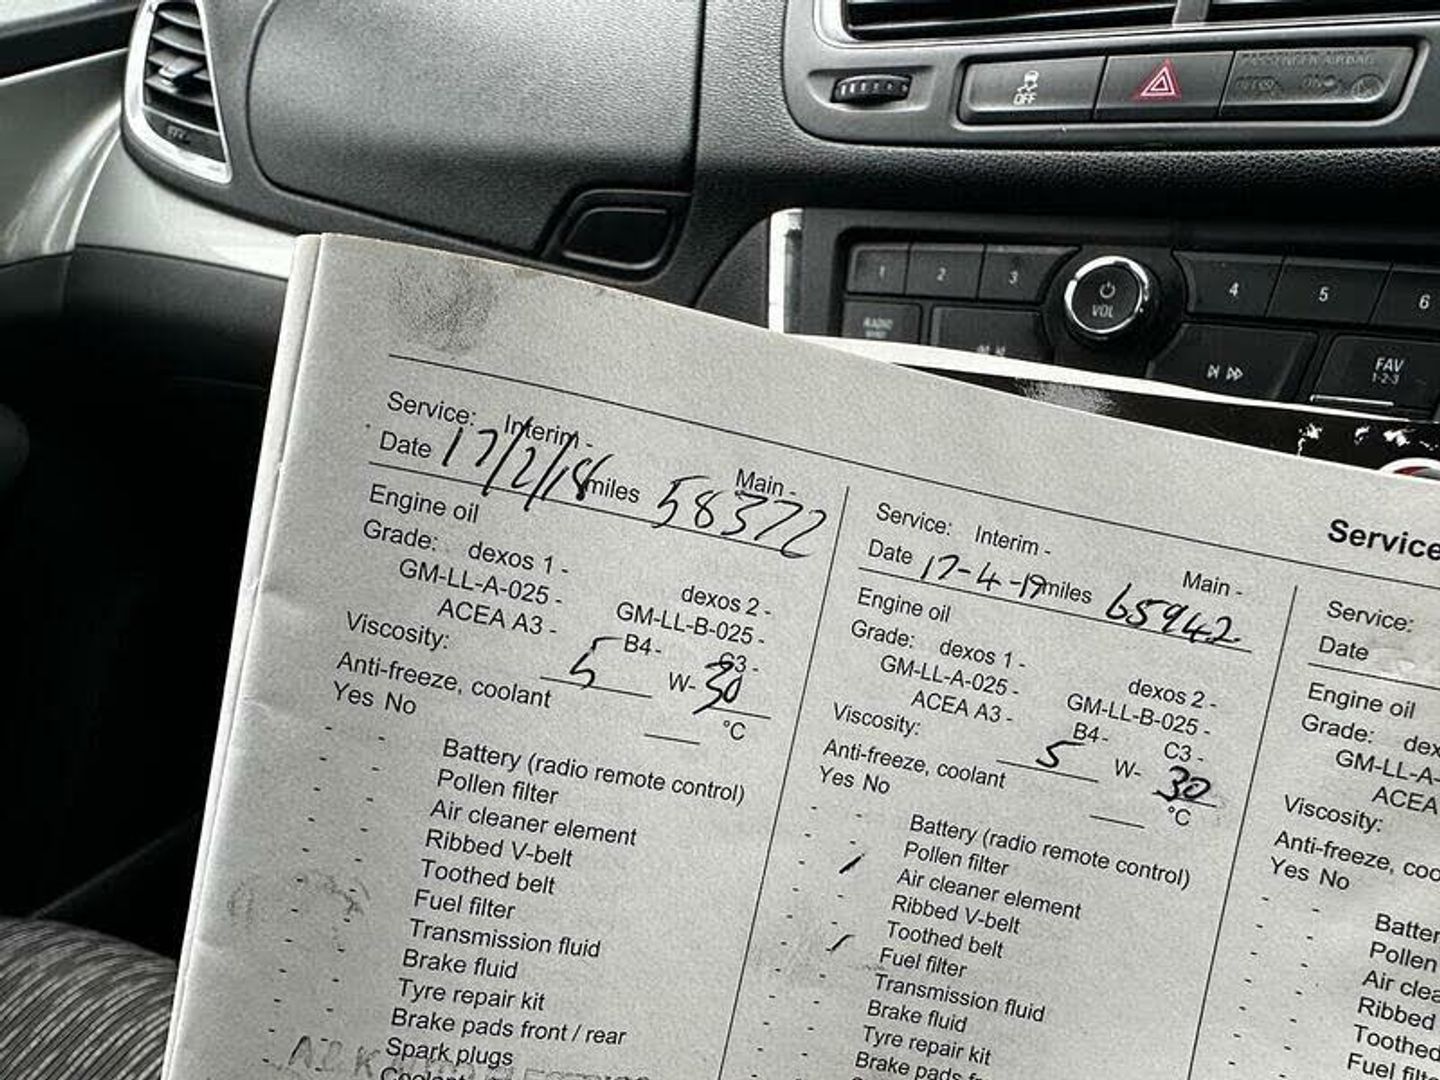 OFF
PASSENGER AIRBAG
OFF ON
1 2 3 VOL 4 5 6
RADIO
FAV
1-2-3
Service: Interim - Main -
Date 17/2/18 miles 58372
Engine oil
Grade: dexos 1 - dexos 2 -
GM-LL-A-025 - GM-LL-B-025 -
ACEA A3 - B4 - C3 -
Viscosity: 5 W- 30
Anti-freeze, coolant °C
Yes No
Battery (radio remote control)
Pollen filter
Air cleaner element
Ribbed V-belt
Toothed belt
Fuel filter
Transmission fluid
Brake fluid
Tyre repair kit
Brake pads front / rear
Spark plugs
Service
Service: Interim - Main -
Date 17-4-19 miles 65942
Engine oil
Grade: dexos 1 - dexos 2 -
GM-LL-A-025 - GM-LL-B-025 -
ACEA A3 - B4 - C3 -
Viscosity: 5 W- 30
Anti-freeze, coolant °C
Yes No
Battery (radio remote control)
Pollen filter
Air cleaner element
Ribbed V-belt
Toothed belt
Fuel filter
Transmission fluid
Brake fluid
Tyre repair kit
Brake pads
Service:
Date
Engine oil
Grade: dex
GM-LL-A-
ACEA
Viscosity:
Anti-freeze, coo
Yes No
Batter
Pollen
Air clea
Ribbed
Toothed
Fuel filte